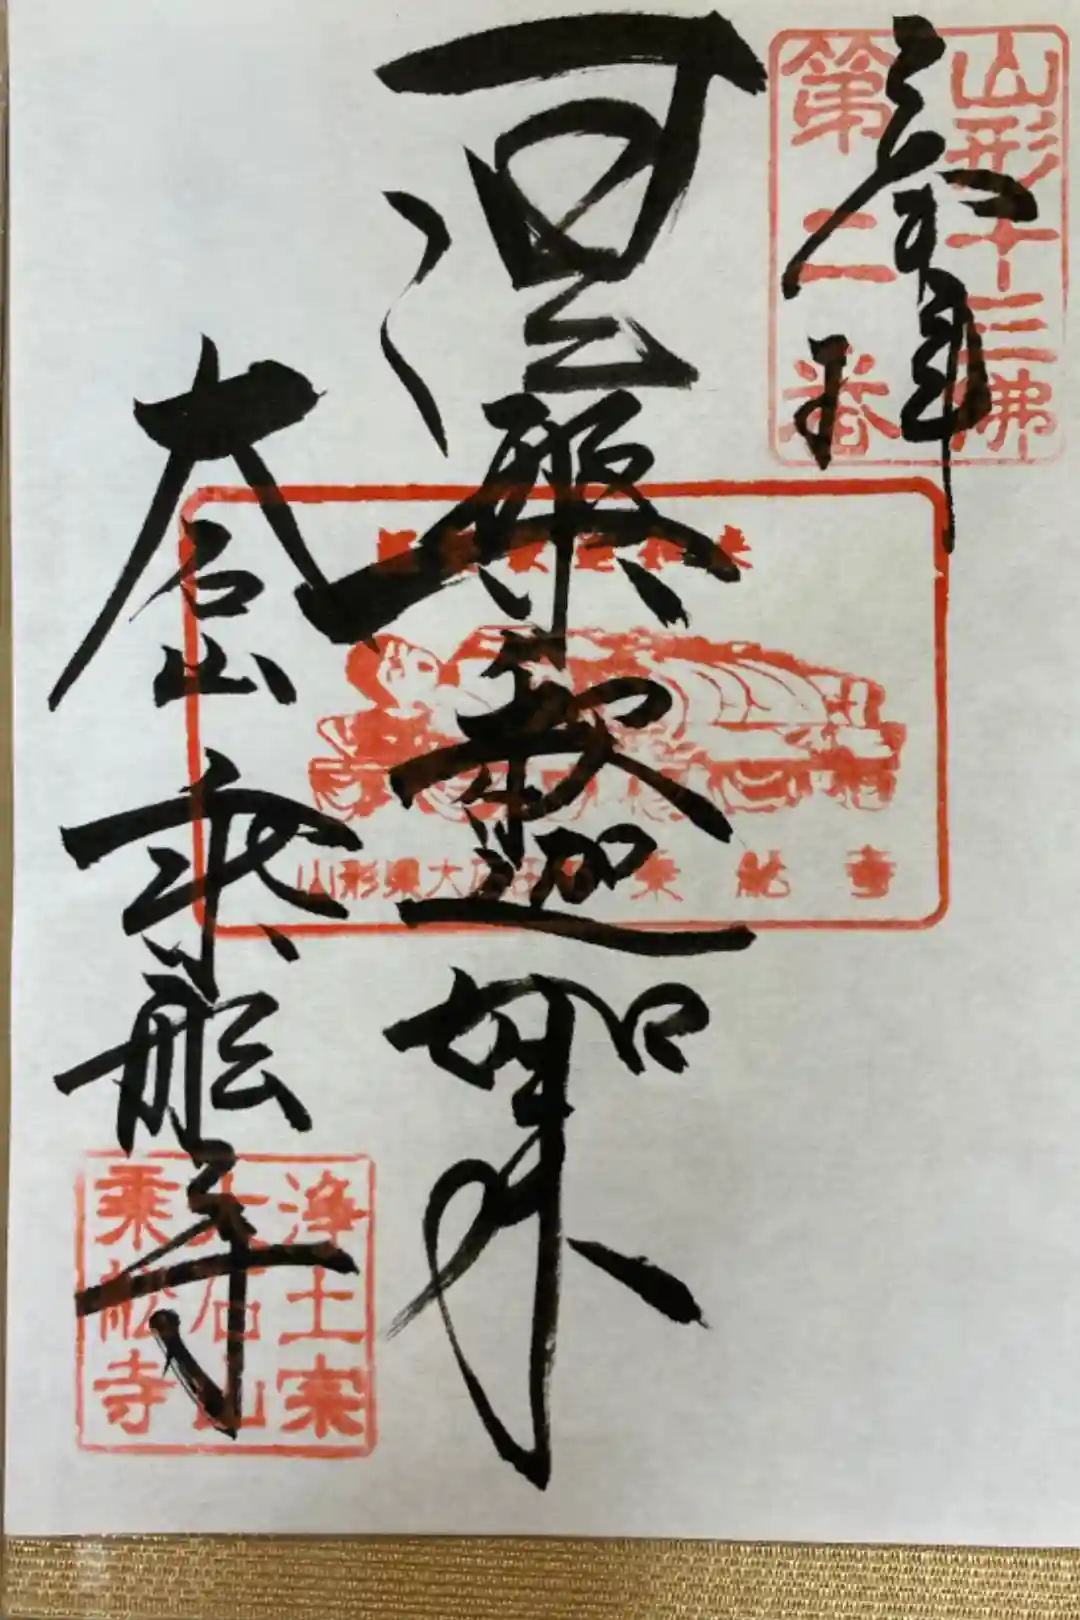 山形十三佛
第二番
涅槃釈迦如来
山形県大石田町 乗舩寺
大石山 乗舩寺
浄土宗
大石山
乗舩寺